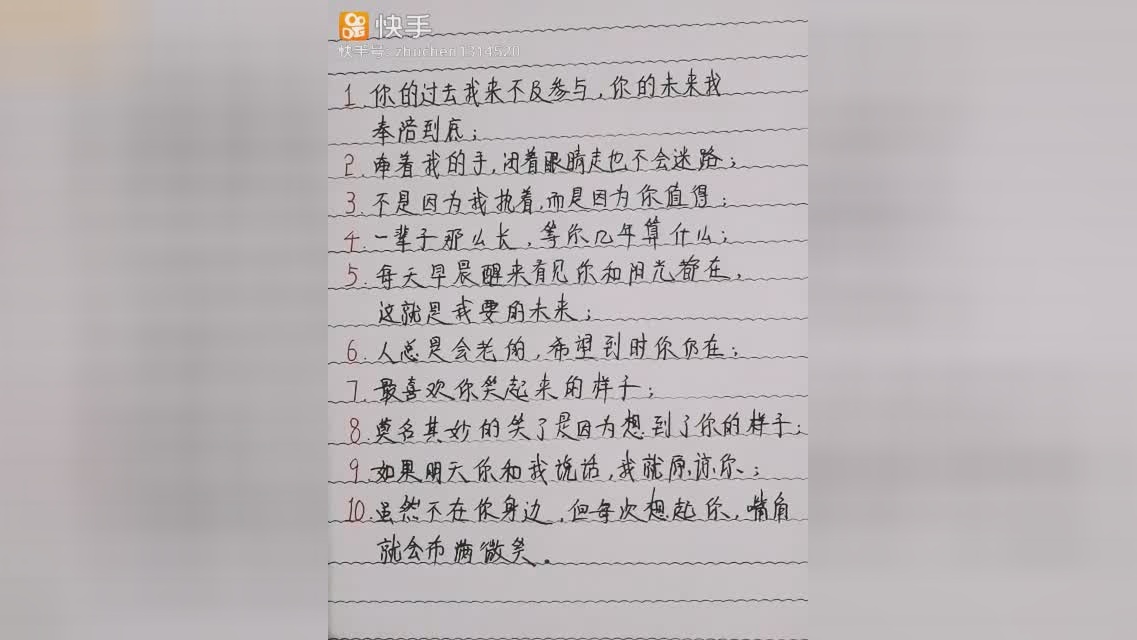 快手
快手号:zhuchen1314520
1.你的过去我来不及参与,你的未来我
奉陪到底;
2.牵着我的手,闭着眼睛走也不会迷路;
3.不是因为我执着,而是因为你值得;
4.一辈子那么长,等你几年算什么;
5.每天早晨醒来看见你和阳光都在,
这就是我要的未来;
6.人总是会老的,希望到时你仍在;
7.最喜欢你笑起来的样子;
8.莫名其妙的笑了是因为想到了你的样子;
9.如果明天你和我说话,我就原谅你;
10.虽然不在你身边,但每次想起你,嘴角
就会布满微笑.